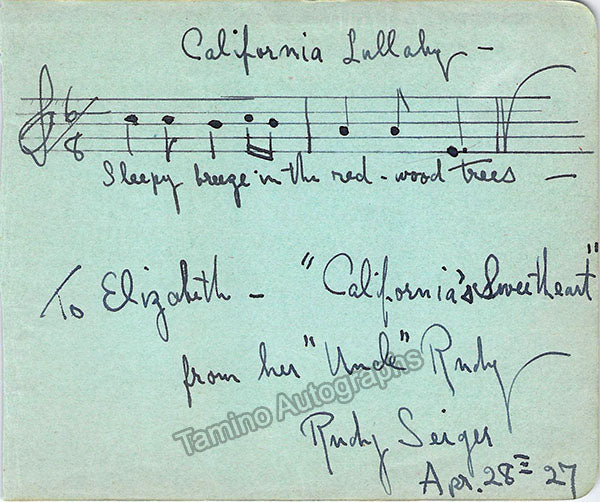 California Lullaby —
6
8
Sleepy breeze in the red-wood trees —
To Elizabeth — "California's Sweetheart"
from her "Uncle" Rudy
Tamino Autographs
Rudy Seiger
Apr. 28 = 27